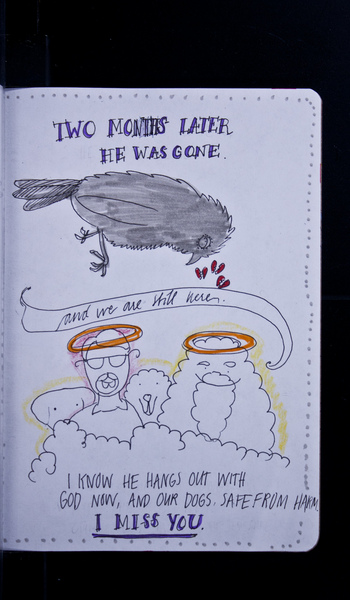 TWO MONTHS LATER
HE WAS GONE.
and we are still here.
I KNOW HE HANGS OUT WITH
GOD NOW, AND OUR DOGS. SAFE FROM HARM.
I MISS YOU.